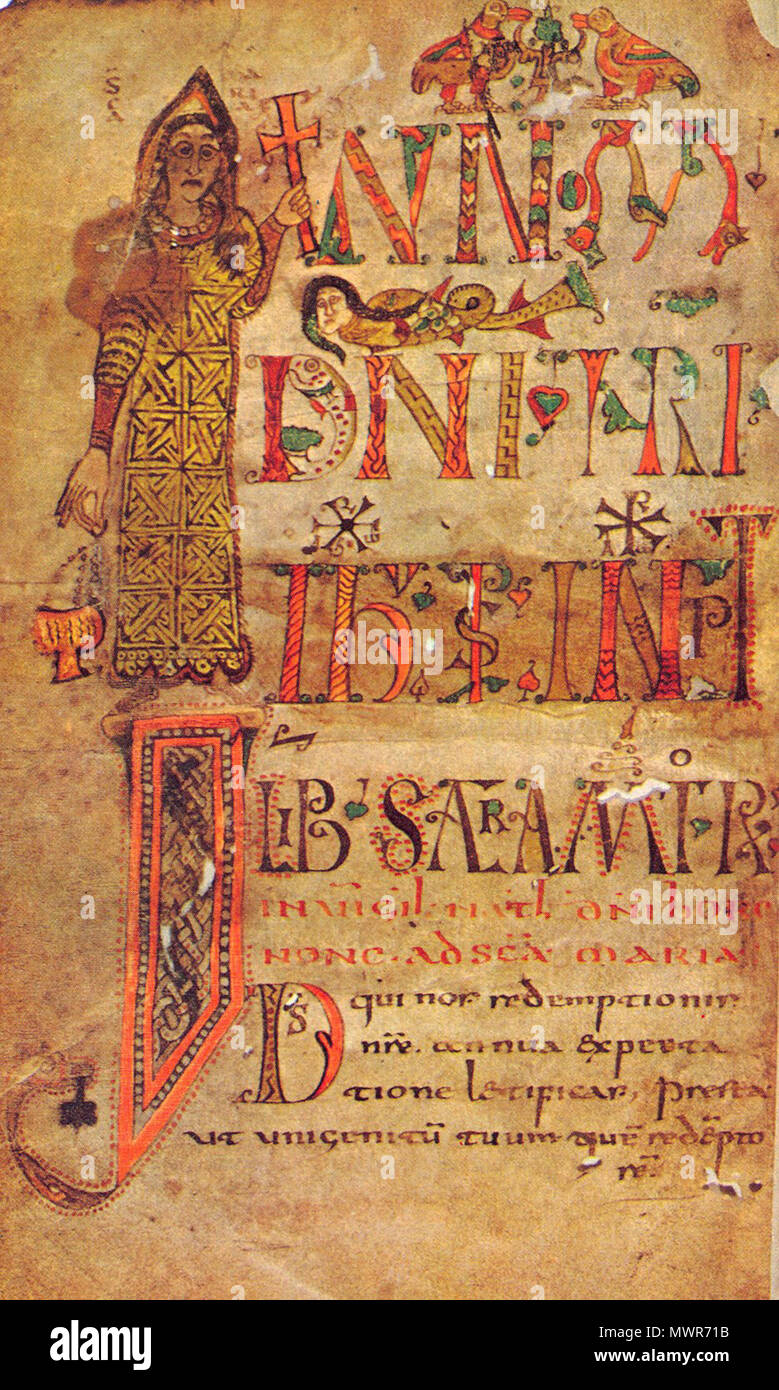 INNOM
DNI NRI
IHU XPI INCPIT
LIB SACRAM
IN UIGIL NATL DNI HORE
NONE. AD SCA MARIA
DS qui nos redemptionis
nre. annua expecta
tione letificas, Presta
ut unigenitū tuum quē redēpto
rē
alamy
Image ID: MWR71B
www.alamy.com